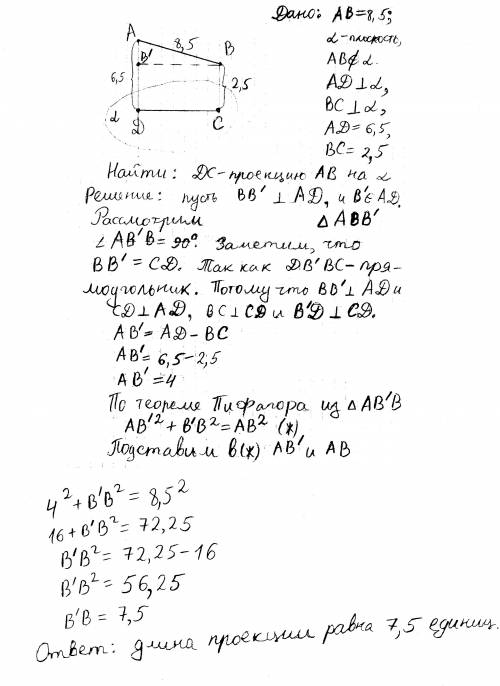 Дано: AB=8,5;
α-плоскость,
AB⊄α.
AD⊥α,
BC⊥α,
AD=6,5,
BC=2,5
A
8,5
B'
B
6,5
2,5
α
D
C
Найти: DC-проекцию AB на α
Решение: пусть BB'⊥AD, и B'∈AD.
Рассмотрим △ABB'
∠AB'B=90°. Заметим, что
BB'=CD. Так как DB'BC-пря-
моугольник. Потому что BB'⊥AD и
CD⊥AD, BC⊥CD и B'D⊥CD.
AB'=AD-BC
AB'=6,5-2,5
AB'=4
По теореме Пифагора из △AB'B
AB'²+B'B²=AB² (*)
Подставим в(*) AB' и AB
4²+B'B²=8,5²
16+B'B²=72,25
B'B²=72,25-16
B'B²=56,25
B'B=7,5
Ответ: длина проекции равна 7,5 единиц.